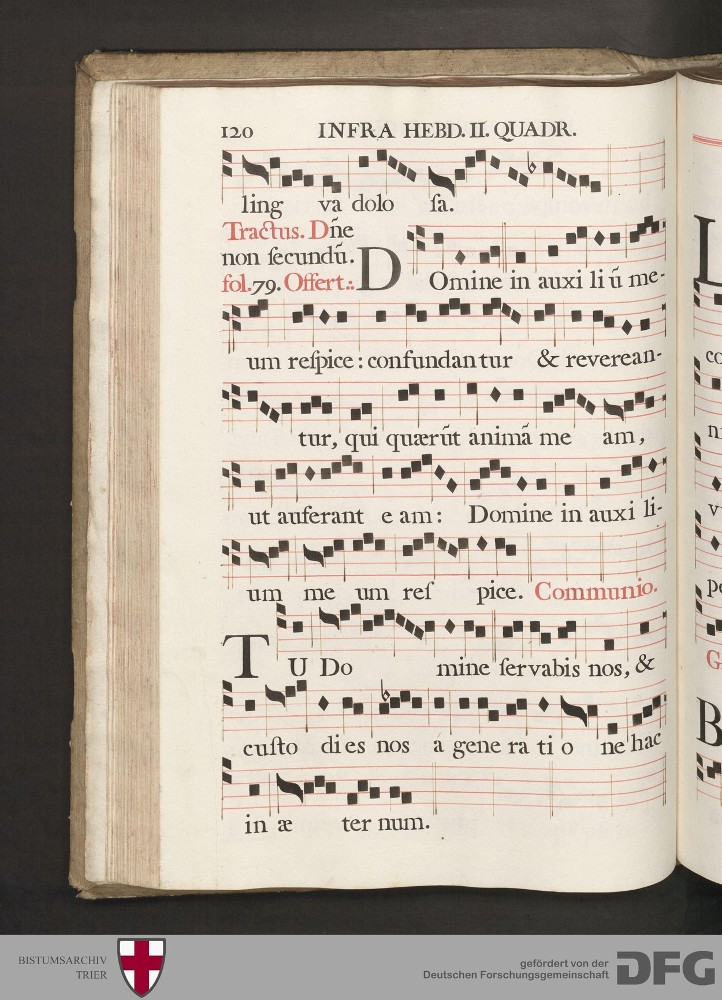 120 INFRA HEBD. II. QUADR.
ling va dolo ſa.
Tractus. Dñe
non ſecundū.
fol. 79. Offert.:
DOmine in auxi li ū me-
um reſpice : confundan tur & reverean-
tur, qui quærūt animā me am,
ut auferant e am : Domine in auxi li-
um me um reſ pice. Communio.
TU Do mine ſervabis nos, &
cuſto di es nos a gene ra ti o ne hac
in æ ter num.
L
co
ni
v
pe
G
B
BISTUMSARCHIV
TRIER
gefördert von der
Deutschen Forschungsgemeinschaft
DFG